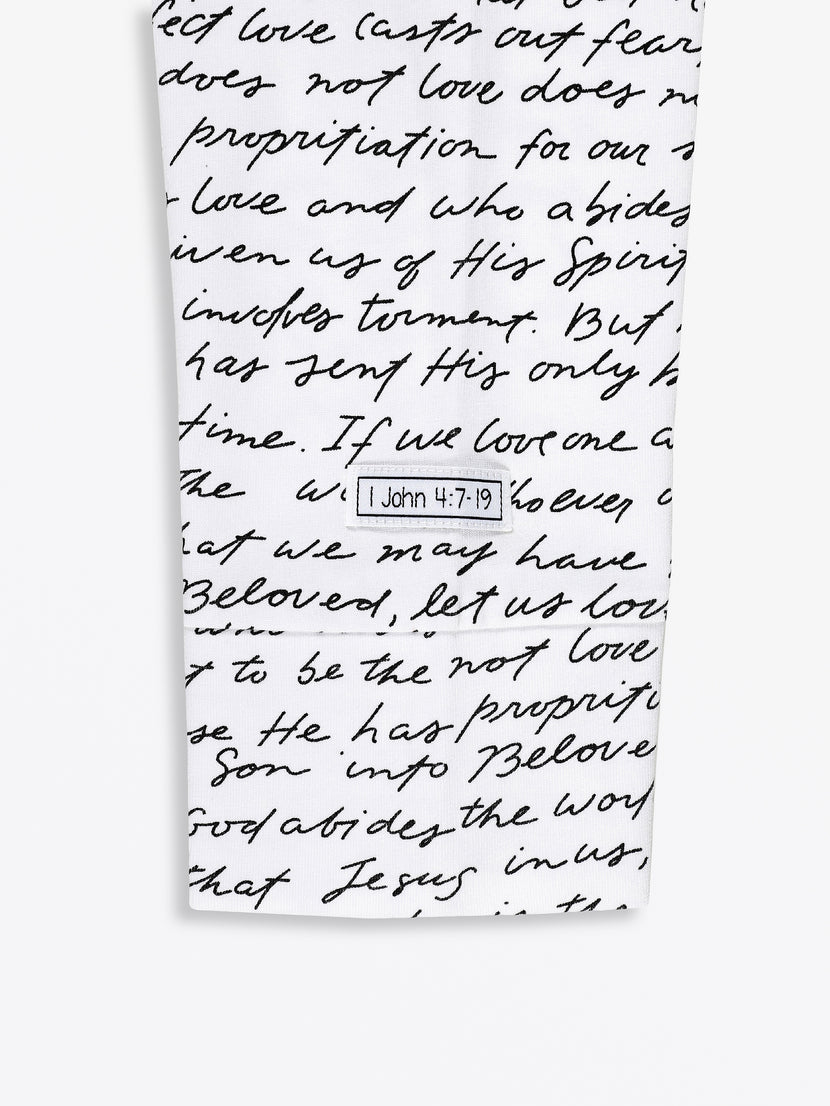 love casts out fear
does not love does
propritiation for our
love and who abides
us of His Spirit
involves torment. But
has sent His only
time. If we love one
the
1 John 4:7-19
we may have
Beloved, let us
to be the not love
He has
Son into
God abides the
that Jesus in us,